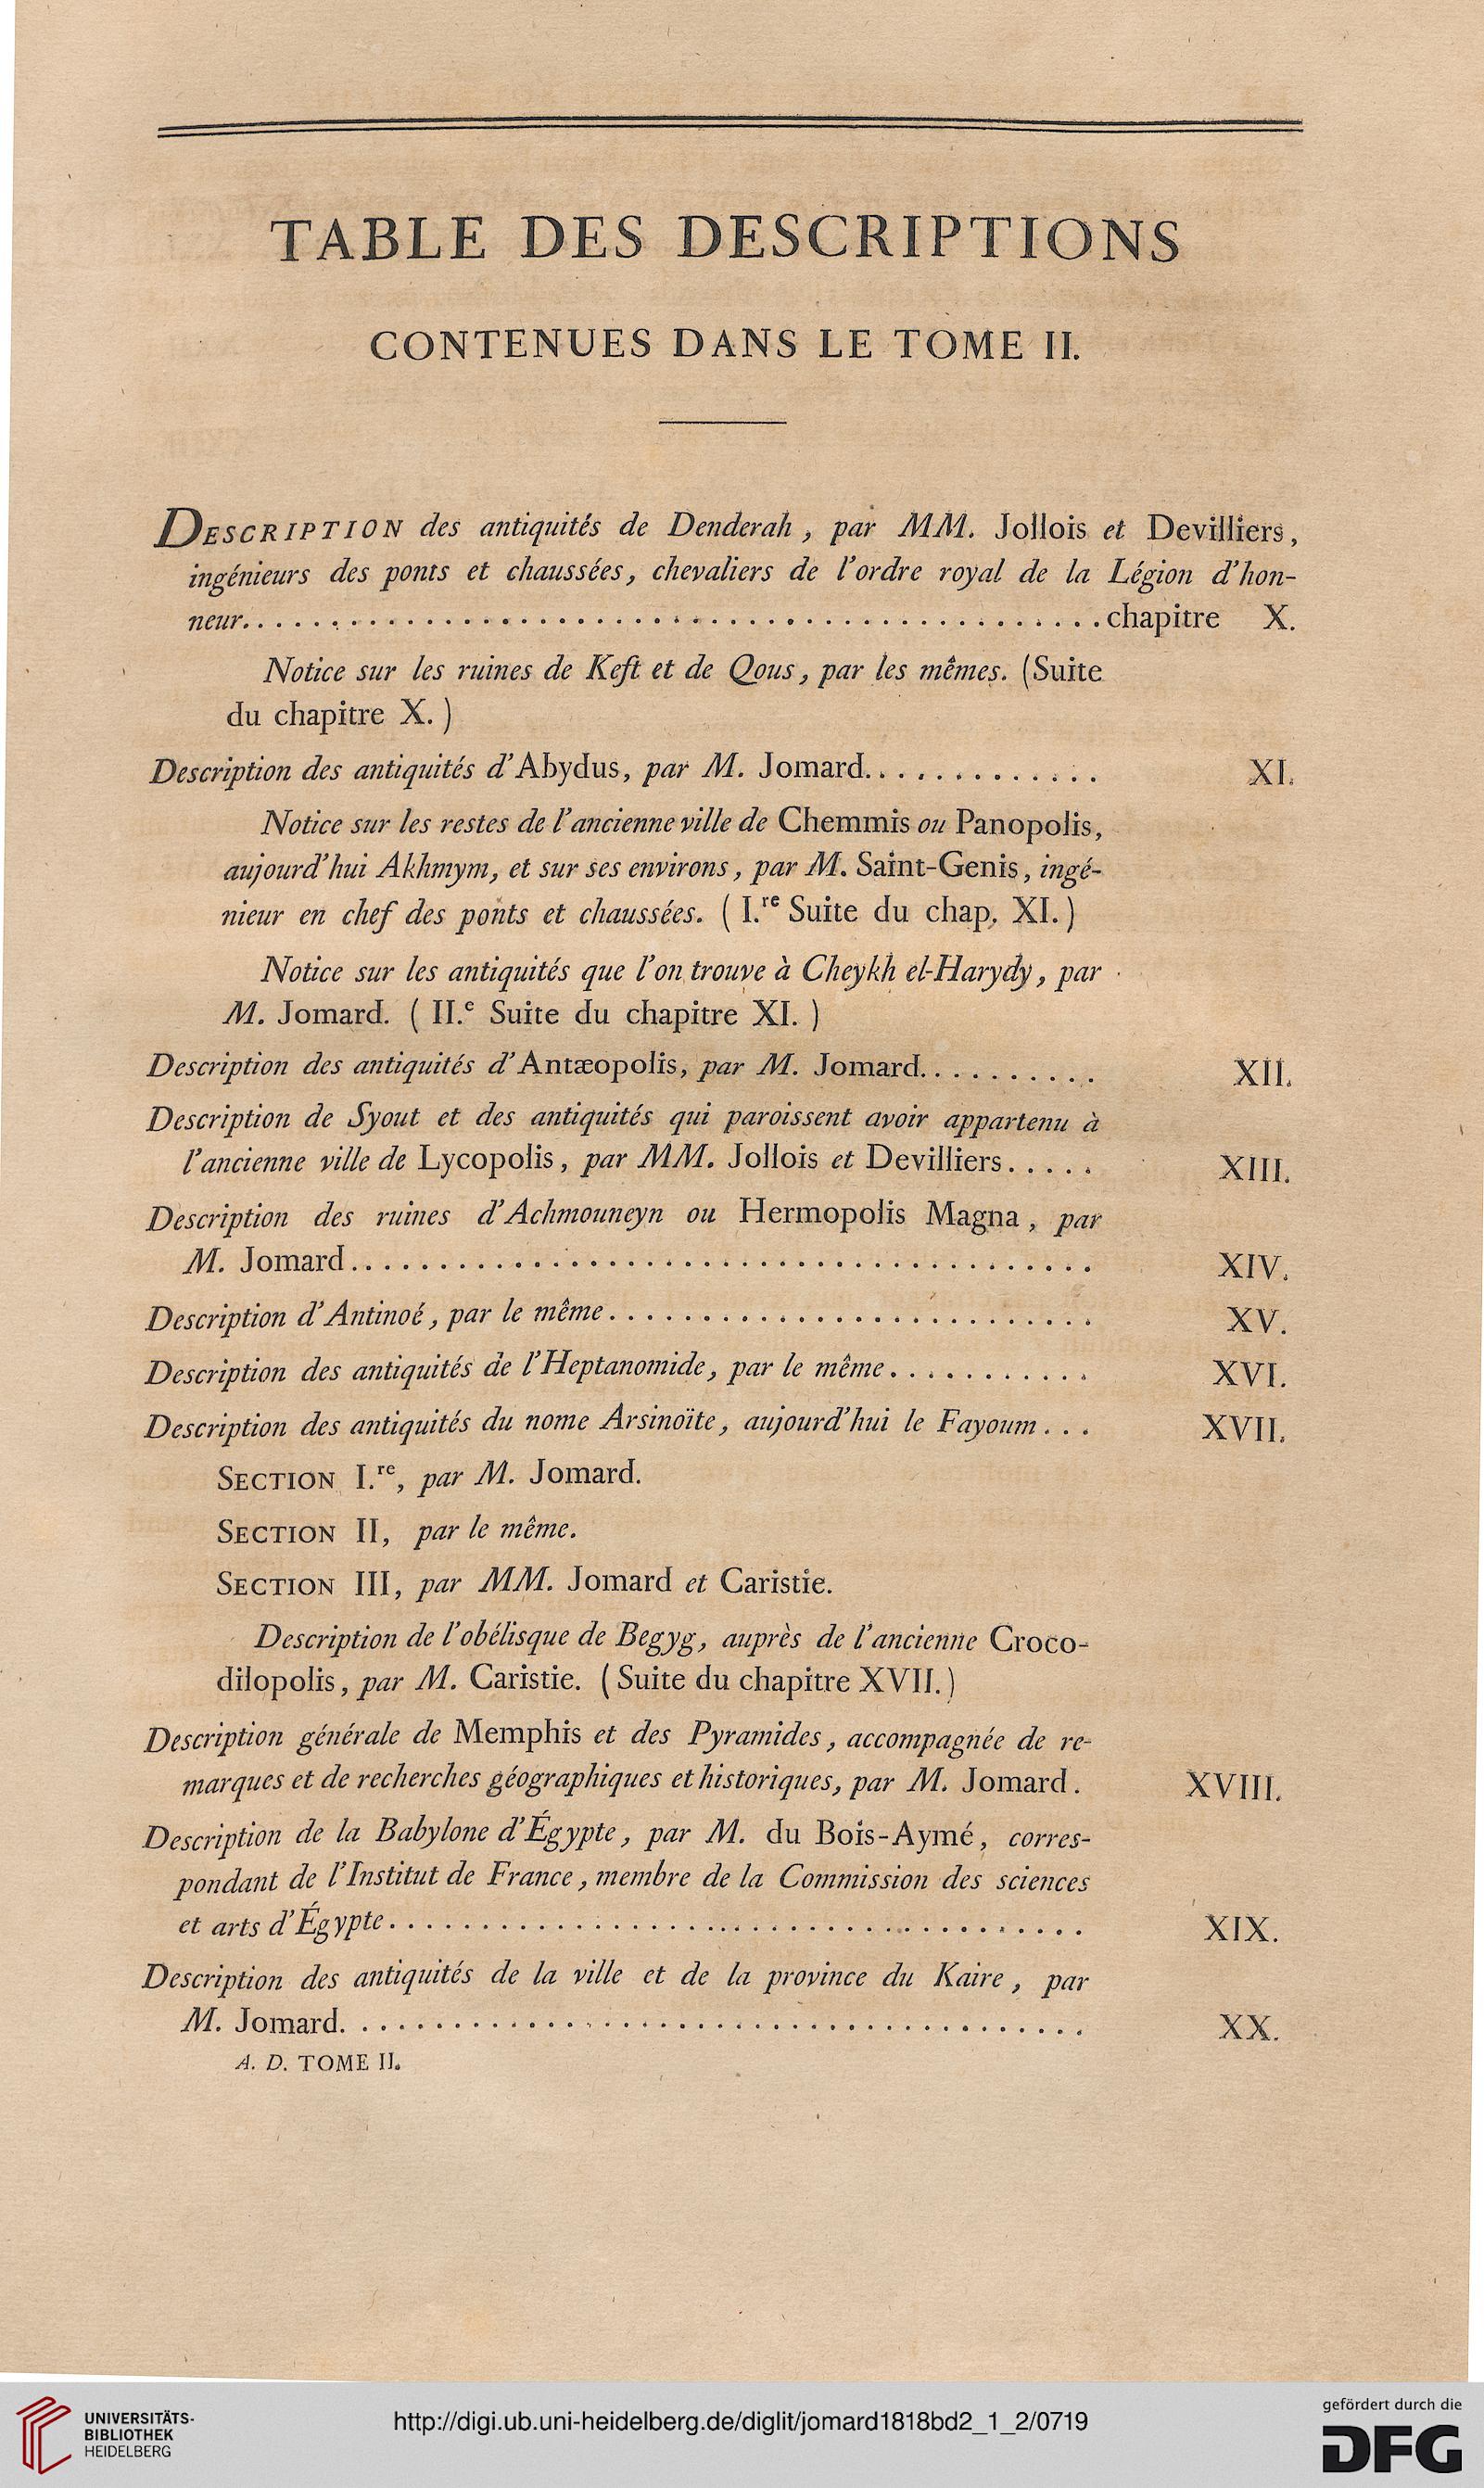 TABLE DES DESCRIPTIONS
CONTENUES DANS LE TOME II.
DESCRIPTION des antiquités de Denderah, par MM. Jollois et Devilliers,
ingénieurs des ponts et chaussées, chevaliers de l'ordre royal de la Légion d'hon-
neur.............................................chapitre X.
Notice sur les ruines de Keft et de Qous, par les mêmes. (Suite
du chapitre X.)
Description des antiquités d'Abydus, par M. Jomard............. XI.
Notice sur les restes de l'ancienne ville de Chemmis ou Panopolis,
aujourd'hui Akhmym, et sur ses environs, par M. Saint-Genis, ingé-
nieur en chef des ponts et chaussées. (I.re Suite du chap. XI.)
Notice sur les antiquités que l'on trouve à Cheykh el-Harydy, par
M. Jomard. (II.e Suite du chapitre XI.)
Description des antiquités d'Antæopolis, par M. Jomard.......... XII.
Description de Syout et des antiquités qui paroissent avoir appartenu à
l'ancienne ville de Lycopolis, par MM. Jollois et Devilliers..... XIII.
Description des ruines d'Achmouneyn ou Hermopolis Magna, par
M. Jomard........................................ XIV.
Description d'Antinoé, par le même.......................... XV.
Description des antiquités de l'Heptanomide, par le même........... XVI.
Description des antiquités du nome Arsinoïte, aujourd'hui le Fayoum... XVII.
SECTION I.re, par M. Jomard.
SECTION II, par le même.
SECTION III, par MM. Jomard et Caristie.
Description de l'obélisque de Begyg, auprès de l'ancienne Croco-
dilopolis, par M. Caristie. (Suite du chapitre XVII.)
Description générale de Memphis et des Pyramides, accompagnée de re-
marques et de recherches géographiques et historiques, par M. Jomard. XVIII.
Description de la Babylone d'Égypte, par M. du Bois-Aymé, corres-
pondant de l'Institut de France, membre de la Commission des sciences
et arts d'Égypte...................................... XIX.
Description des antiquités de la ville et de la province du Kaire, par
M. Jomard........................................ XX.
A. D. TOME II.
UNIVERSITÄTS-
BIBLIOTHEK
HEIDELBERG
http://digi.ub.uni-heidelberg.de/diglit/jomard1818bd2_1_2/0719
gefördert durch die
DFG